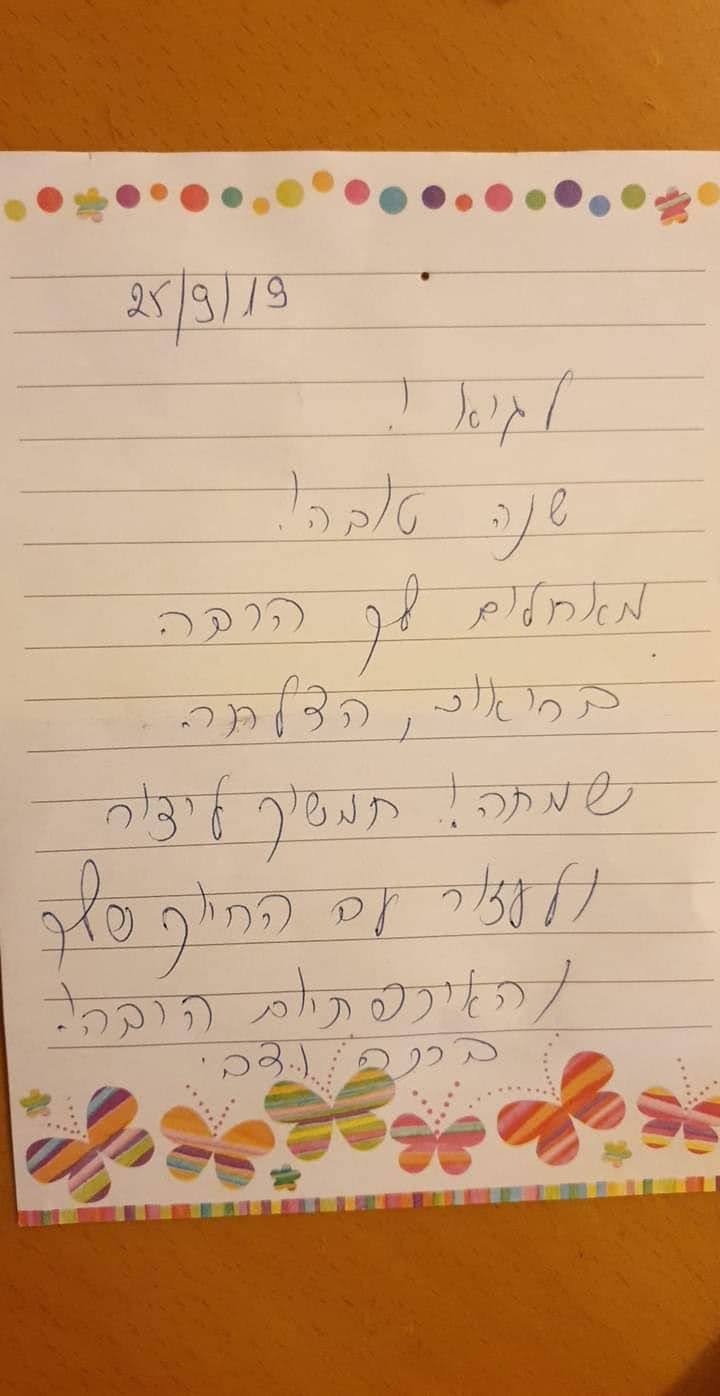 25/9/19
לגיא !
שנה טובה!
מאחלים לך הרבה
בריאות, הצלחה
שמחה! תמשיך ליצור
ולעזור עם החיוך שלך
והאיכפתיות הרבה!
ברכה וצבי